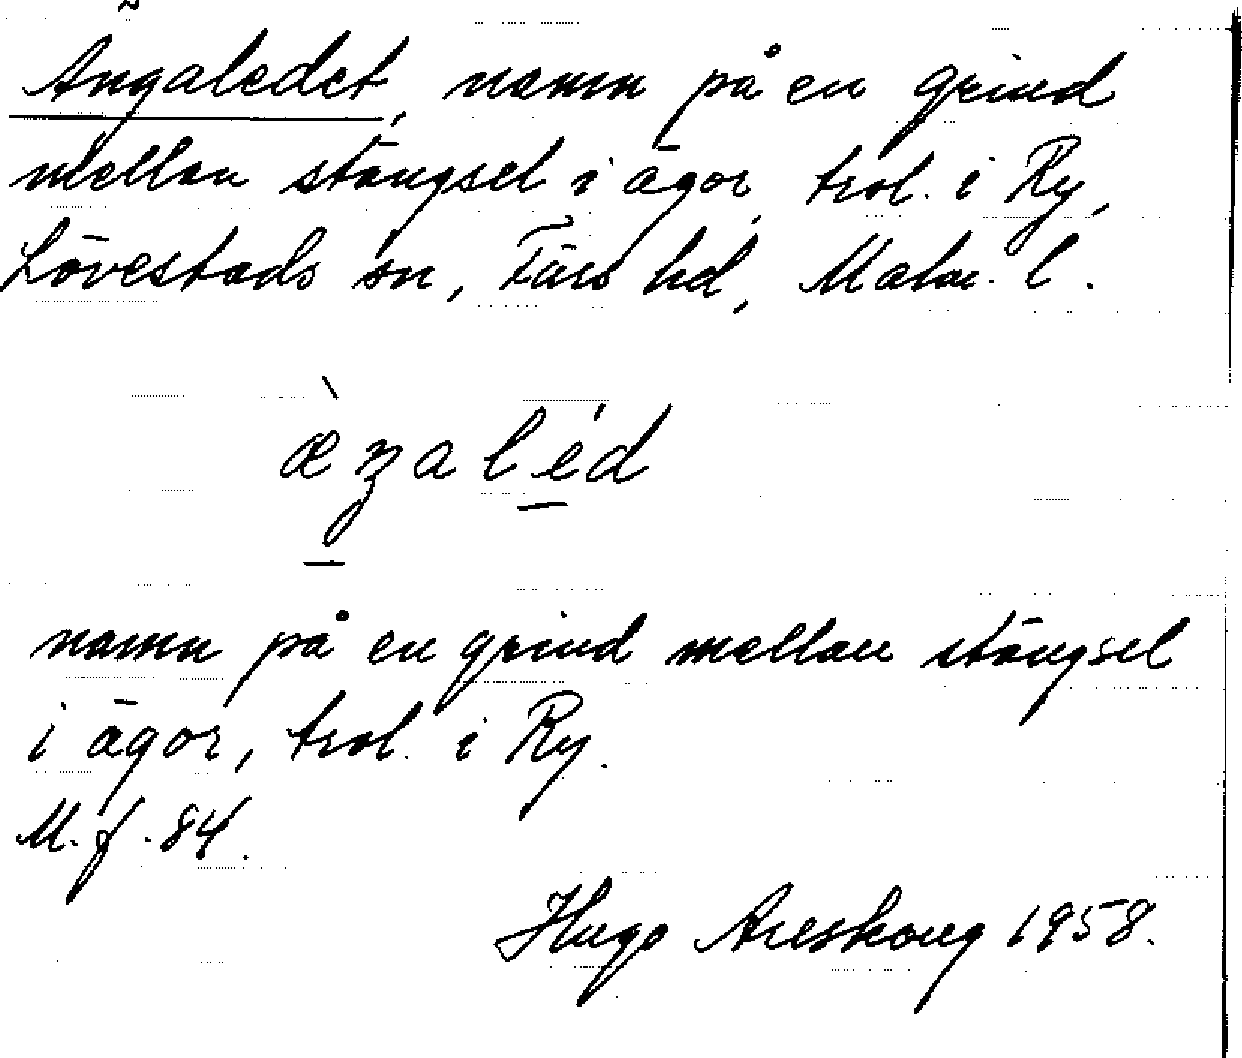 Ängaledet, namn på en grind
mellan stängsel i ägor, trol. i Ry,
Lövestads sn, Färs hd, Malm. l.
æ̀ʒaléd
namn på en grind mellan stängsel
i ägor, trol. i Ry.
M. f. 84.
Hugo Areskoug 1958.